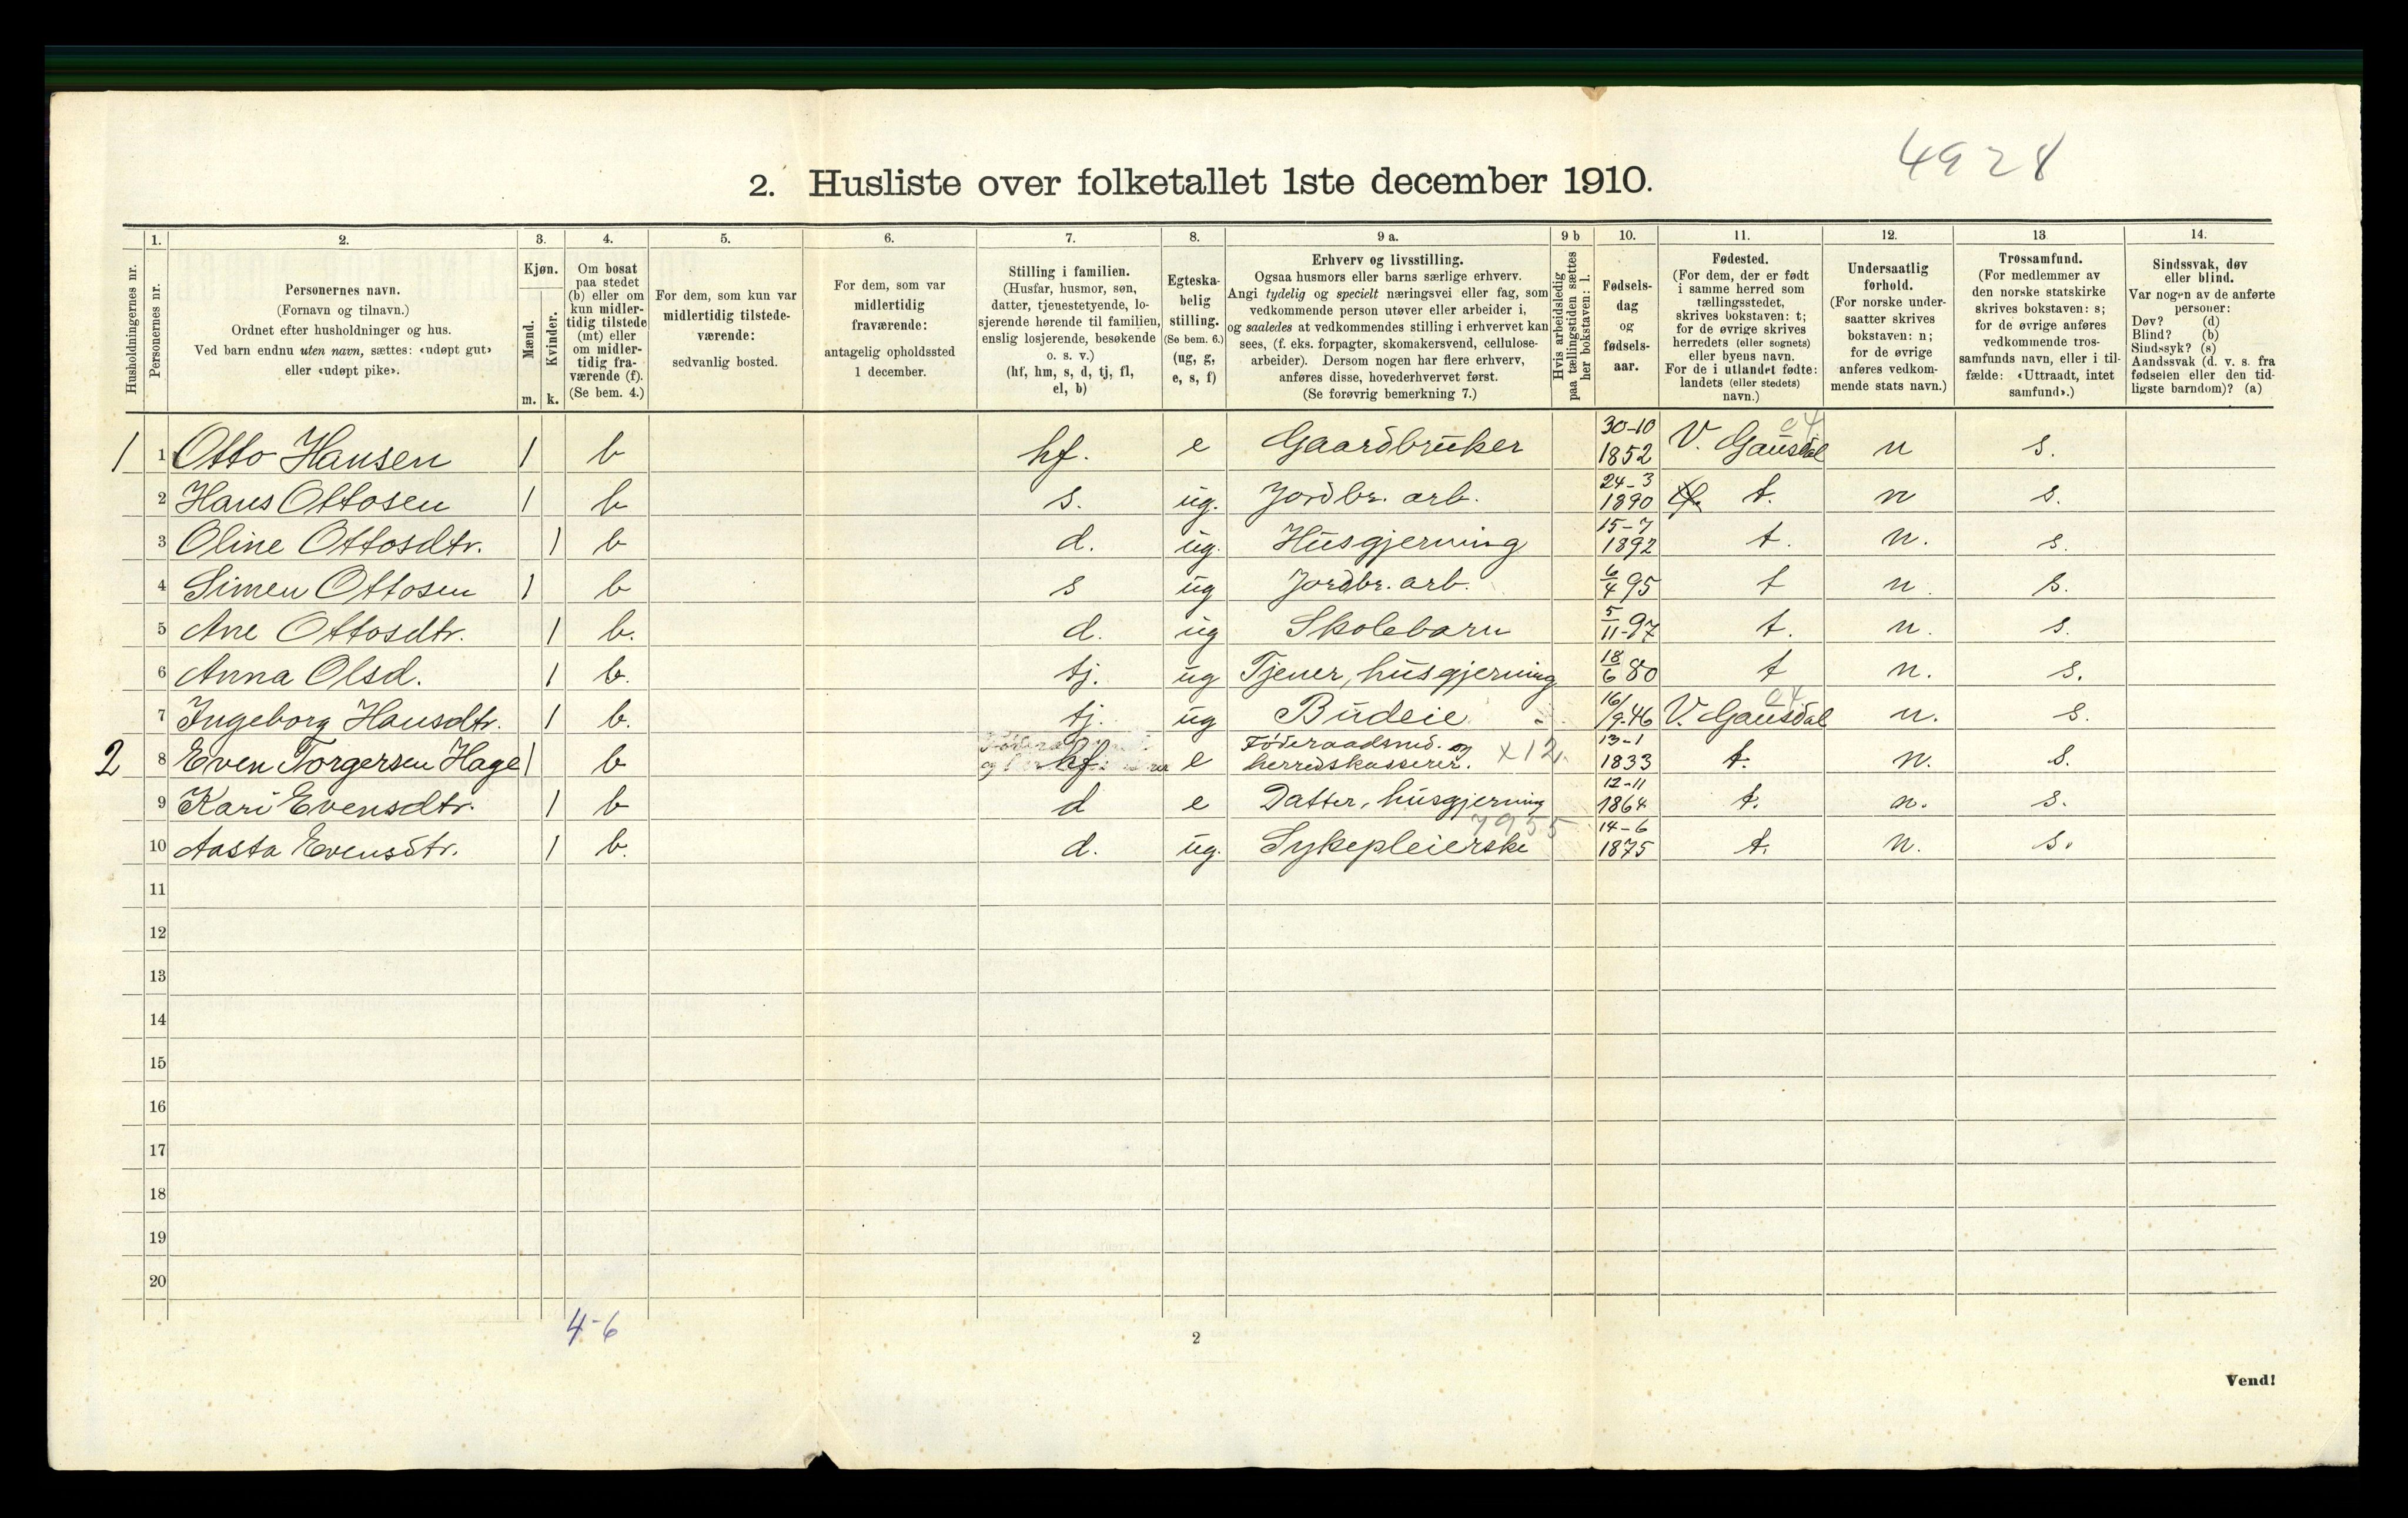 4928
2. Husliste over folketallet 1ste december 1910.
Husholdningernes nr.
1.
Personernes nr.
2.
Personernes navn.
(Fornavn og tilnavn.)
Ordnet efter husholdninger og hus.
Ved barn endnu uten navn, sættes: «udøpt gut»
eller «udøpt pike».
3.
Kjøn.
Mænd.
Kvinder.
m. k.
4.
Om bosat
paa stedet
(b) eller om
kun midler-
tidig tilstede
(mt) eller
om midler-
tidig fra-
værende (f).
(Se bem. 4.)
5.
For dem, som kun var
midlertidig tilstede-
værende:
sedvanlig bosted.
6.
For dem, som var
midlertidig
fraværende:
antagelig opholdssted
1 december.
7.
Stilling i familien.
(Husfar, husmor, søn,
datter, tjenestetyende, lo-
sjerende hørende til familien,
enslig losjerende, besøkende
o. s. v.)
(hf, hm, s, d, tj, fl,
el, b)
8.
Egteska-
belig
stilling.
(Se bem. 6.)
(ug, g,
e, s, f)
9 a.
Erhverv og livsstilling.
Ogsaa husmors eller barns særlige erhverv.
Angi tydelig og specielt næringsvei eller fag, som
vedkommende person utøver eller arbeider i,
og saaledes at vedkommendes stilling i erhvervet kan
sees, (f. eks. forpagter, skomakersvend, cellulose-
arbeider). Dersom nogen har flere erhverv,
anføres disse, hovederhvervet først.
(Se forøvrig bemerkning 7.)
9 b
Hvis arbeidsledig
paa tællingstiden sættes
her bokstaven: l.
10.
Fødsels-
dag
og
fødsels-
aar.
11.
Fødested.
(For dem, der er født
i samme herred som
tællingsstedet,
skrives bokstaven: t;
for de øvrige skrives
herredets (eller sognets)
eller byens navn.
For de i utlandet fødte:
landets (eller stedets)
navn.)
12.
Undersaatlig
forhold.
(For norske under-
saatter skrives
bokstaven: n;
for de øvrige
anføres vedkom-
mende stats navn.)
13
Trossamfund.
(For medlemmer av
den norske statskirke
skrives bokstaven: s;
for de øvrige anføres
vedkommende tros-
samfunds navn, eller i til-
fælde: «Uttraadt, intet
samfund».)
14.
Sindssvak, døv
eller blind.
Var nogen av de anførte
personer:
Døv? (d)
Blind? (b)
Sindssyk? (s)
Aandssvak (d. v. s. fra
fødselen eller den tid-
ligste barndom)? (a)
1 1 Otto Hansen 1 b hf. e Gaardbruker 30-10 1852 V. Gausdal n s.
2 Hans Ottosen 1 b s. ug. Jordbr. arb. 24-3 1890 t. n s.
3 Oline Ottosdtr. 1 b d. ug. Husgjerning 15-7 1892 t. n. s.
4 Simen Ottosen 1 b s ug Jordbr. arb. 6/4 95 t n. s.
5 Ane Ottosdtr. 1 b. d. ug Skolebarn 5/11-97 t. n. s.
6 Anna Olsd. 1 b. tj. ug Tjener, husgjerning 18/6 80 t n. s.
7 Ingeborg Hansdtr. 1 b. tj. ug Budeie 16/9-46 V. Gausdal n. s.
2 8 Even Torgersen Hage 1 b hf. e Føderaadsmd. og herredskasserer. x12. 13-1 1833 t. n. s.
9 Kari Evensdtr. 1 b d e Datter, husgjerning 12-11 1864 t. n. s.
7955
10 Aasta Evensdtr. 1 b. d. ug. Sykepleierske 14-6 1875 t. n. s.
11
12
13
14
15
16
17
18
19
20
4-6
2
Vend!